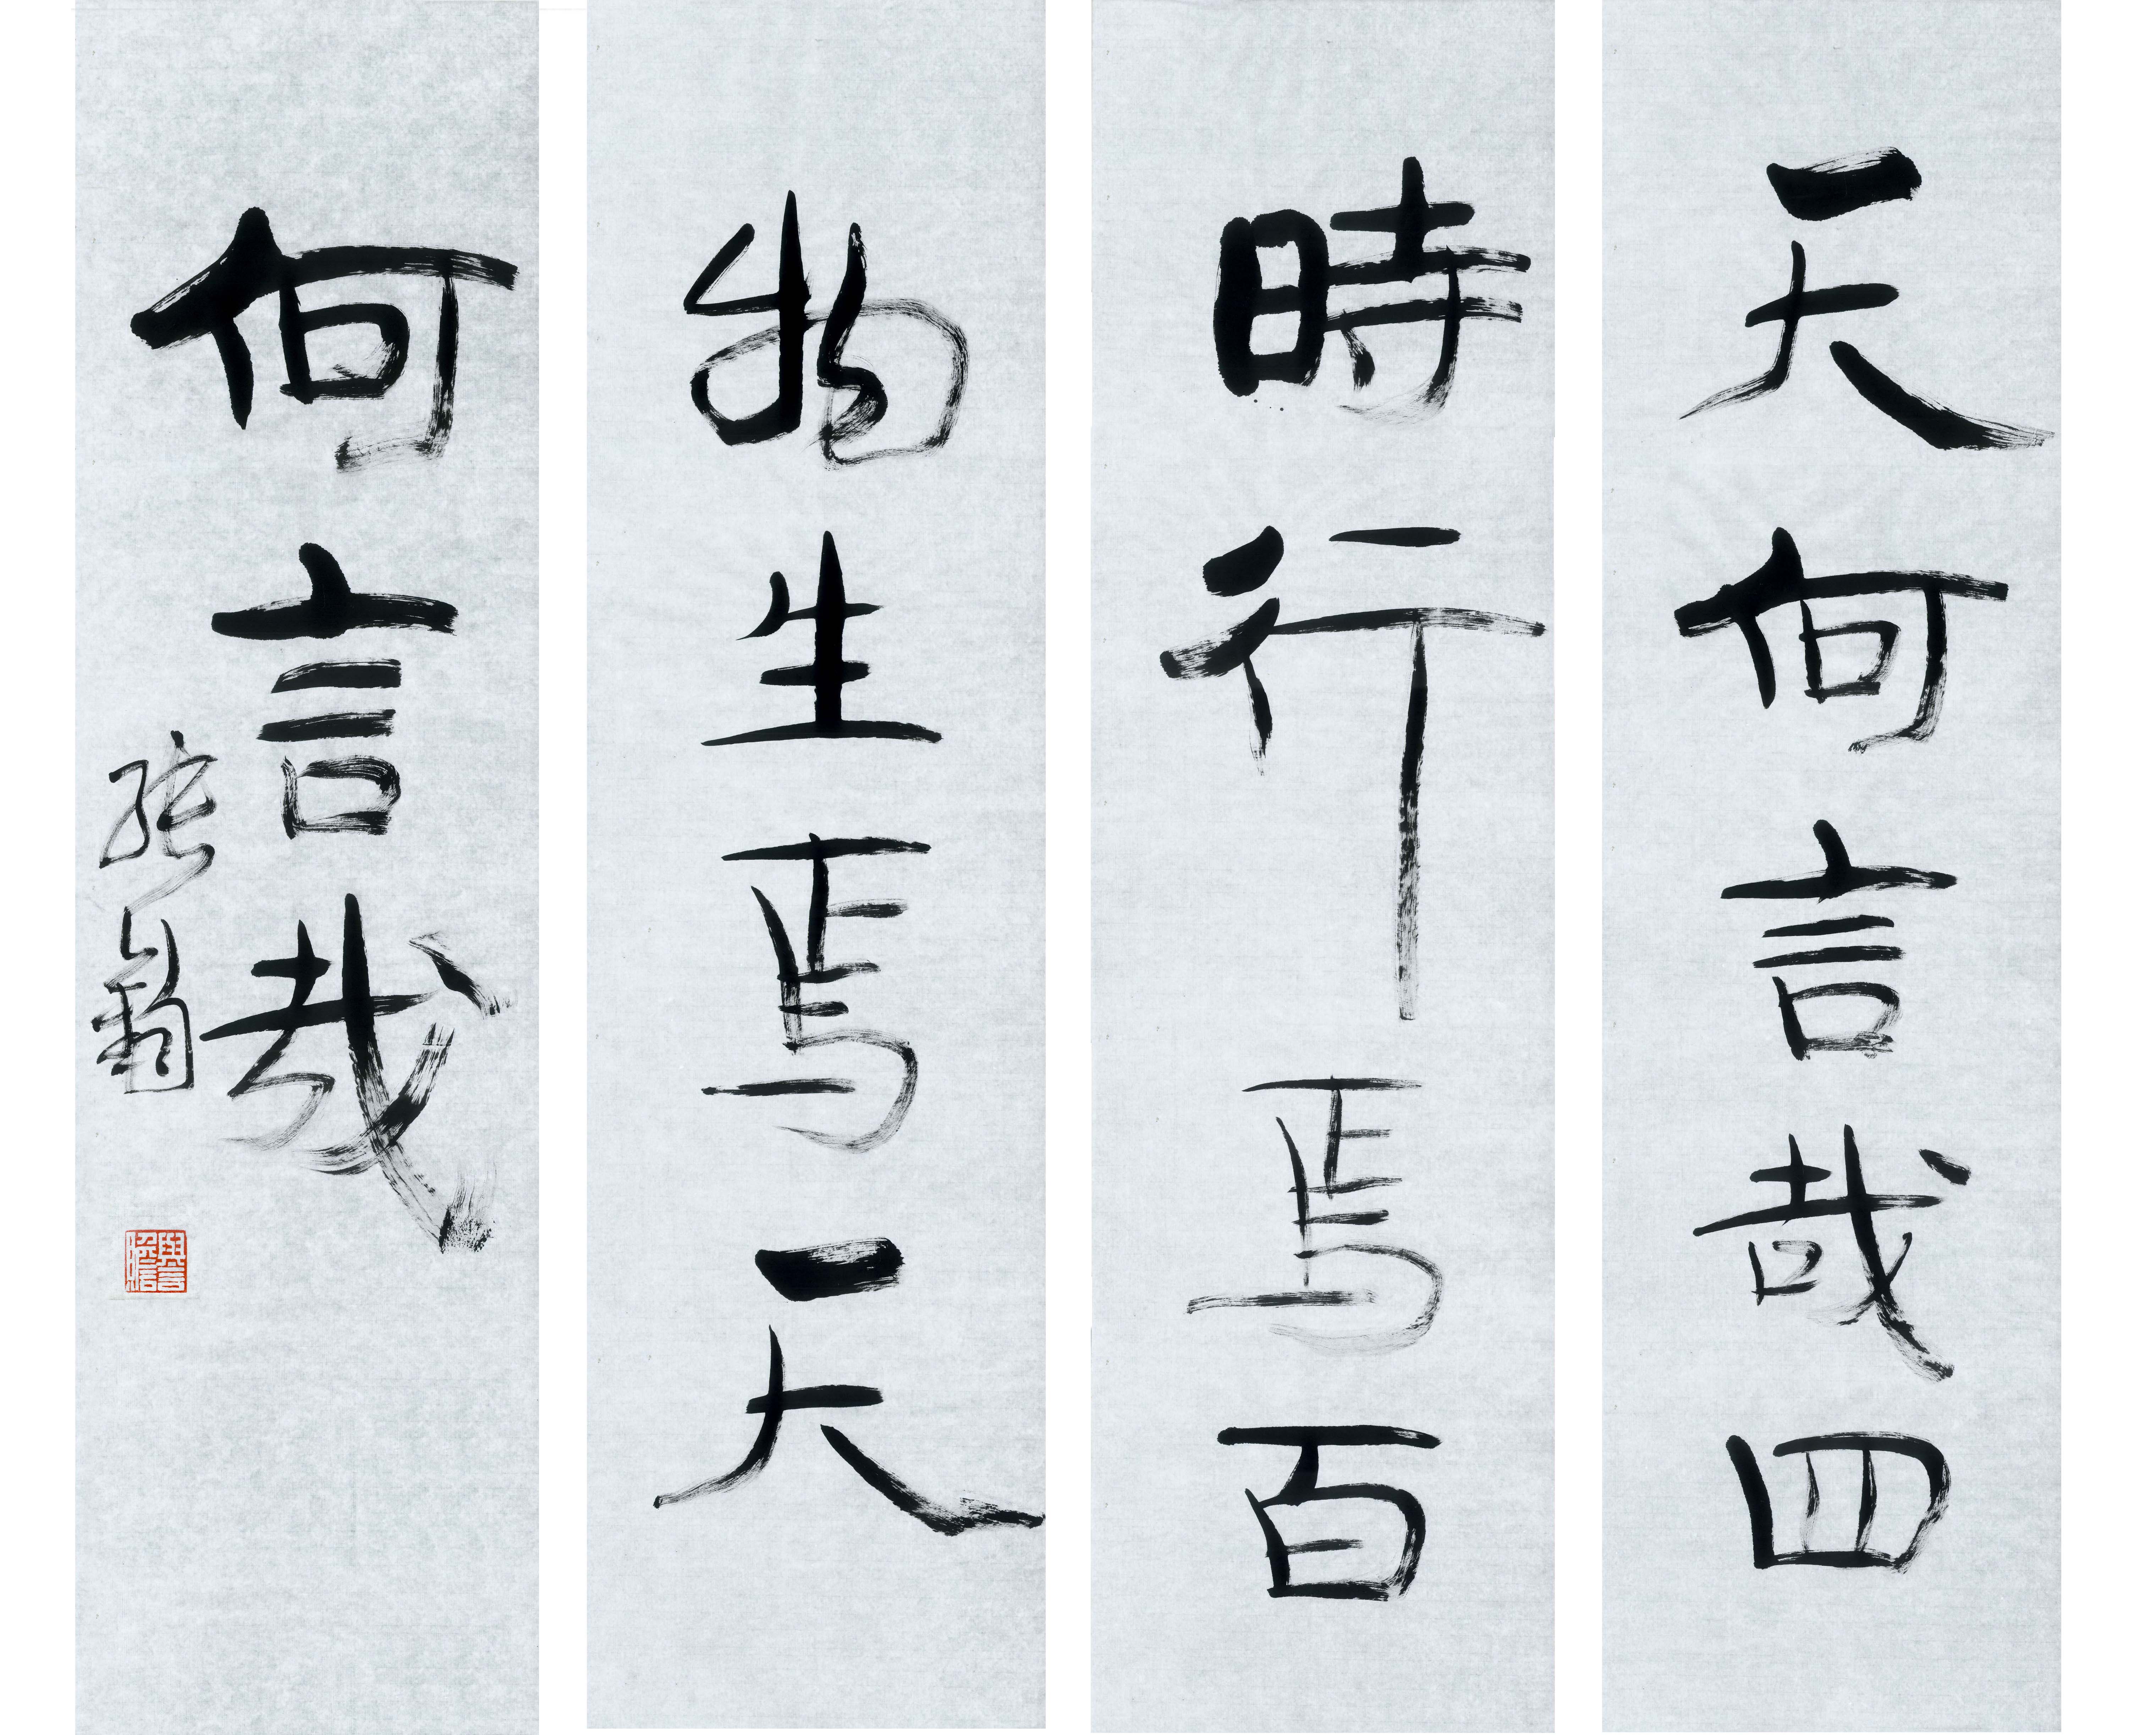 天何言哉四
時行焉百
物生焉天
何言哉